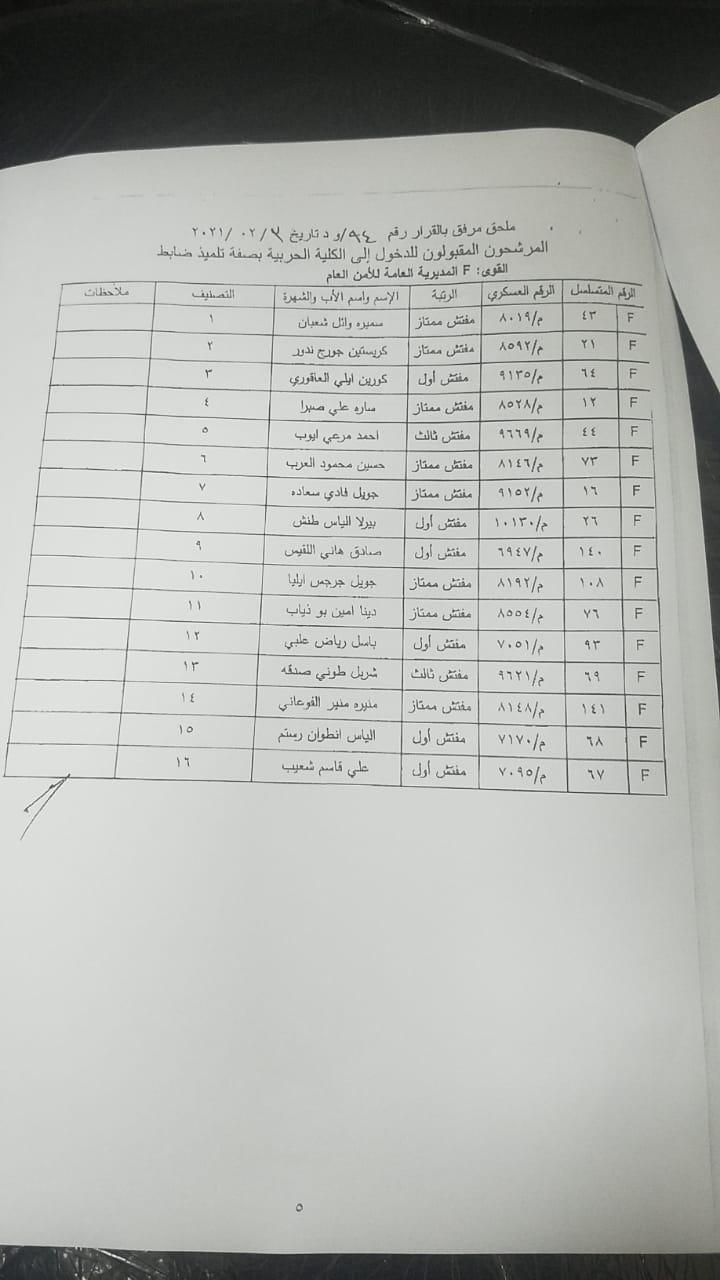 ملحق مرفق بالقرار رقم ٩٤/و د تاريخ ٠٢/ ٢٠٢١/
المرشحون المقبولون للدخول إلى الكلية الحربية بصفة تلميذ ضابط
القوى: F المديرية العامة للأمن العام
الرقم المتسلسل الرقم العسكري الرتبة الإسم واسم الأب والشهرة التصنيف ملاحظات
F ٤٣ م/٨٠١٩ مفتش ممتاز سميره وائل شعبان ١
F ٢١ م/٨٥٩٢ مفتش ممتاز كريستين جورج ندور ٢
F ٦٤ م/٩١٣٥ مفتش أول كورين ايلي العاقوري ٣
F ١٢ م/٨٥٢٨ مفتش ممتاز ساره علي صبرا ٤
F ٤٤ م/٩٦٦٩ مفتش ثالث احمد مرعي ايوب ٥
F ٧٣ م/٨١٤٦ مفتش ممتاز حسين محمود العرب ٦
F ١٦ م/٩١٥٢ مفتش ممتاز جويل فادي سعاده ٧
F ٢٦ م/١٠١٣٠ مفتش أول بيرلا الياس طنش ٨
F ١٤٠ م/٦٩٤٧ مفتش أول صادق هاني اللقيس ٩
F ١٠٨ م/٨١٩٢ مفتش ممتاز جويل جرجس ايليا ١٠
F ٧٦ م/٨٥٥٤ مفتش ممتاز دينا امين بو ذياب ١١
F ٩٣ م/٧٠٥١ مفتش أول باسل رياض علبي ١٢
F ٦٩ م/٩٦٢١ مفتش ثالث شربل طوني صدقه ١٣
F ١٤١ م/٨١٤٨ مفتش ممتاز منيره منير الفوعاني ١٤
F ٦٨ م/٧١٧٠ مفتش أول الياس انطوان رستم ١٥
F ٦٧ م/٧٠٩٥ مفتش أول علي قاسم شعيب ١٦
٥